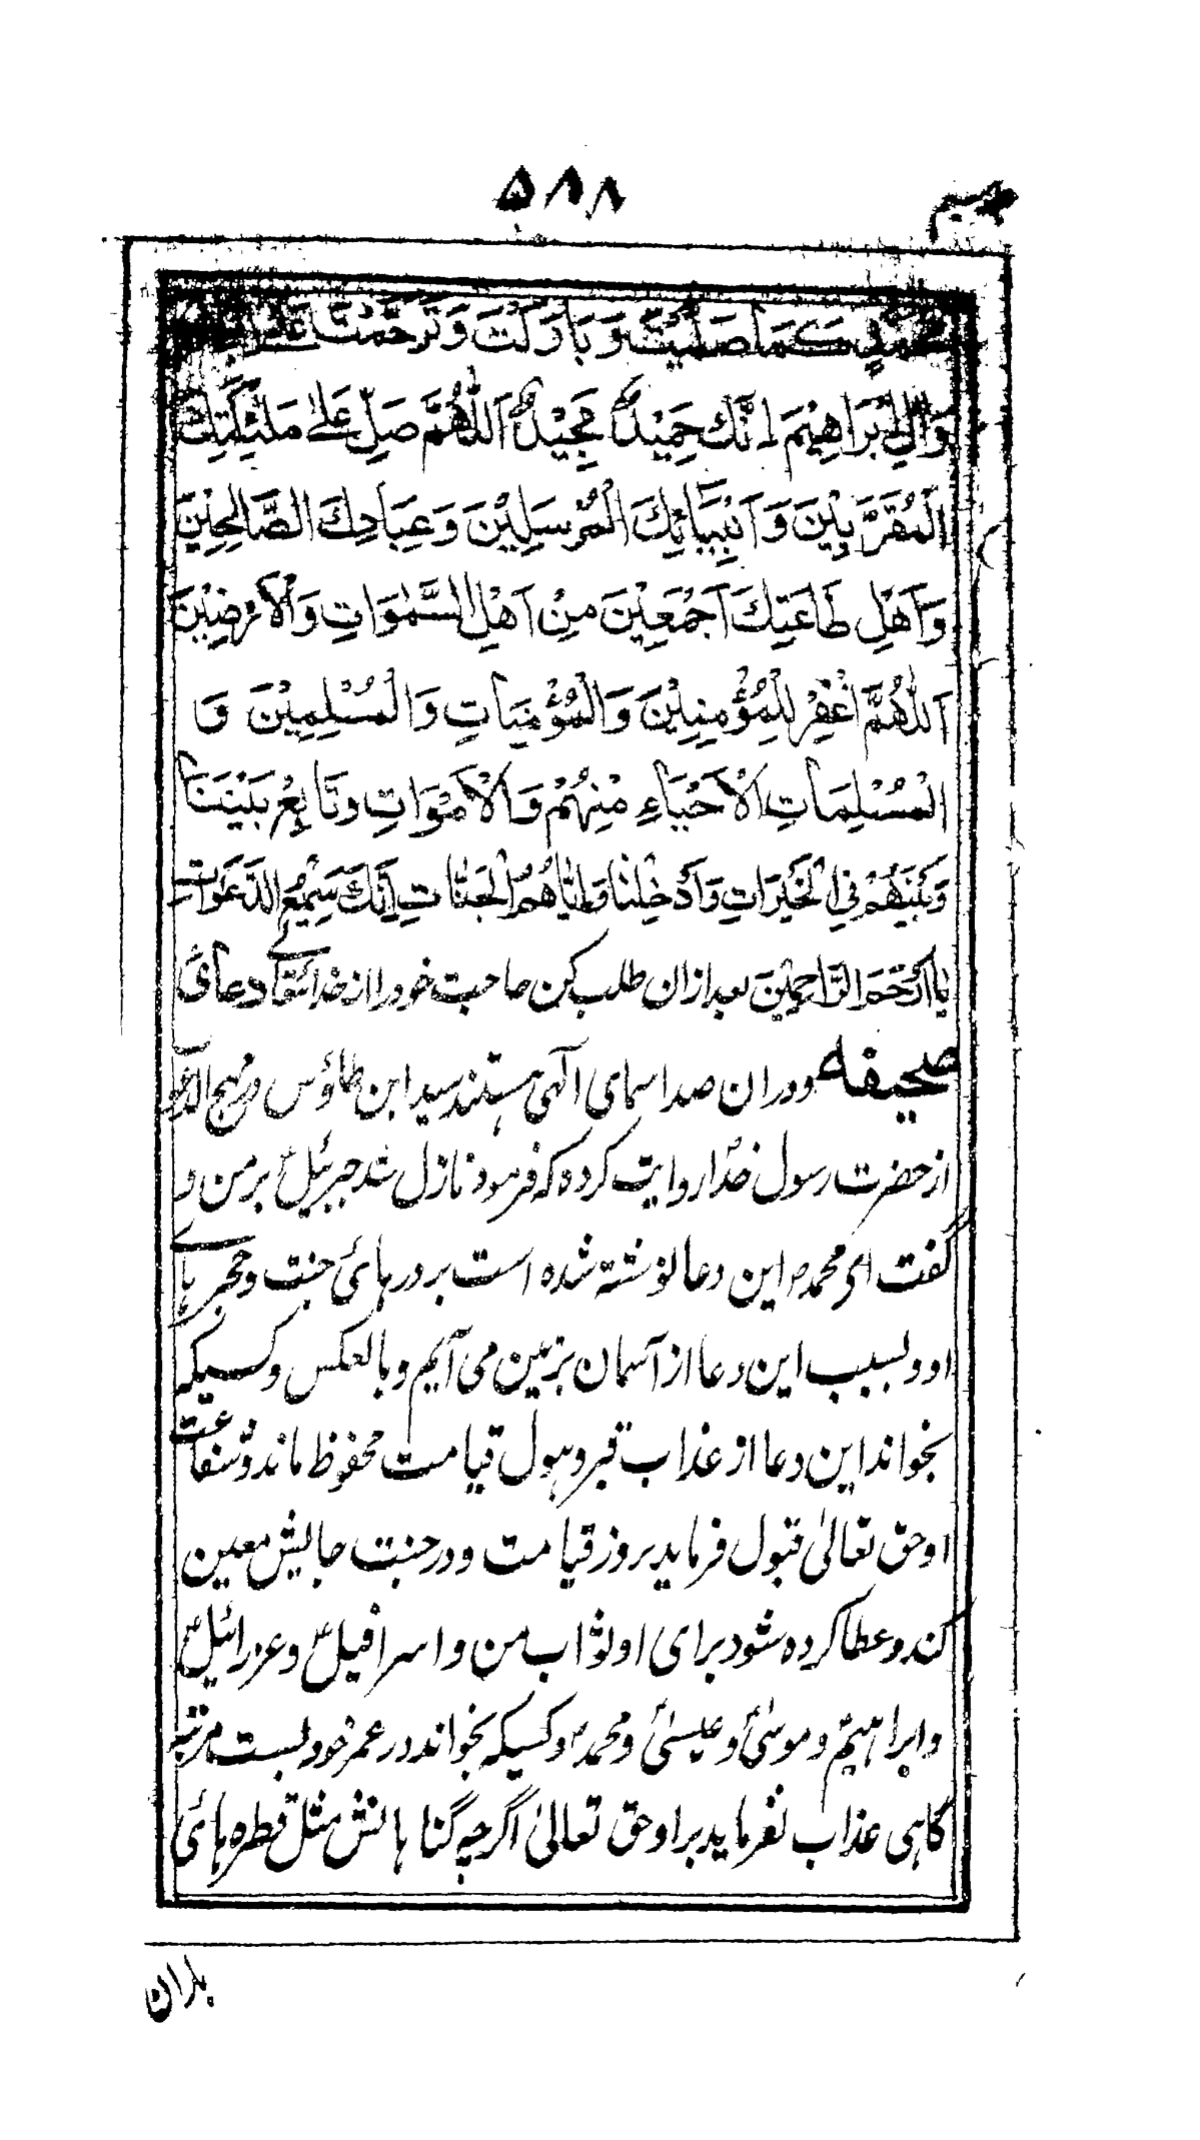 ۵۸۸
مُحَمَّدٍ كَمَا صَلَّيْتَ وَبَارَكْتَ وَتَرَحَّمْتَ
وَآلِ إِبْرَاهِيْمَ إِنَّكَ حَمِيْدٌ مَجِيْدٌ اَللّٰهُمَّ صَلِّ عَلٰى مَلٰئِكَتِكَ
الْمُقَرَّبِيْنَ وَاَنْبِيَائِكَ الْمُرْسَلِيْنَ وَعِبَادِكَ الصَّالِحِيْنَ
وَاَهْلِ طَاعَتِكَ اَجْمَعِيْنَ مِنْ اَهْلِ السَّمٰوَاتِ وَالْاَرَضِيْنَ
اَللّٰهُمَّ اغْفِرْ لِلْمُؤْمِنِيْنَ وَالْمُؤْمِنَاتِ وَالْمُسْلِمِيْنَ وَ
الْمُسْلِمَاتِ الْاَحْيَاءِ مِنْهُمْ وَالْاَمْوَاتِ وَتَابِعْ بَيْنَنَا
وَبَيْنَهُمْ فِي الْخَيْرَاتِ وَاَدْخِلْنَا وَاِيَّاهُمُ الْجَنَّاتِ اِنَّكَ سَمِيْعُ الدَّعَوَاتِ
يَا اَرْحَمَ الرَّاحِمِيْنَ بعد ازان طلب کن حاجت خود را از خدائتعالے دعائے
صحیفه و دران صد اسمای آلهی هستند سید ابن طاؤس در مهج الدعوات
از حضرت رسول خداؐ روایت کرده که فرمود نازل شد جبرئیلؑ بر من و
گفت ای محمدؐ این دعا نوشته شده است بر درهائی جنت و حجره‌های
او و بسبب این دعا از آسمان بزمین می آئیم و بالعکس و کسیکه
بخواند این دعا از عذاب قبر و هول قیامت محفوظ ماند و شفاعت
او حق تعالیٰ قبول فرماید بروز قیامت و در جنت جایش معین
کند و عطا کرده شود برای او ثواب من و اسرافیلؑ و عزرائیلؑ
و ابراهیمؑ و موسیٰؑ و عیسیٰؑ و محمدؐ و کسیکه بخواند در عمر خود بست مرتبه
گاهی عذاب نفرماید بر او حق تعالیٰ اگرچه گناهانش مثل قطره هائی
باران